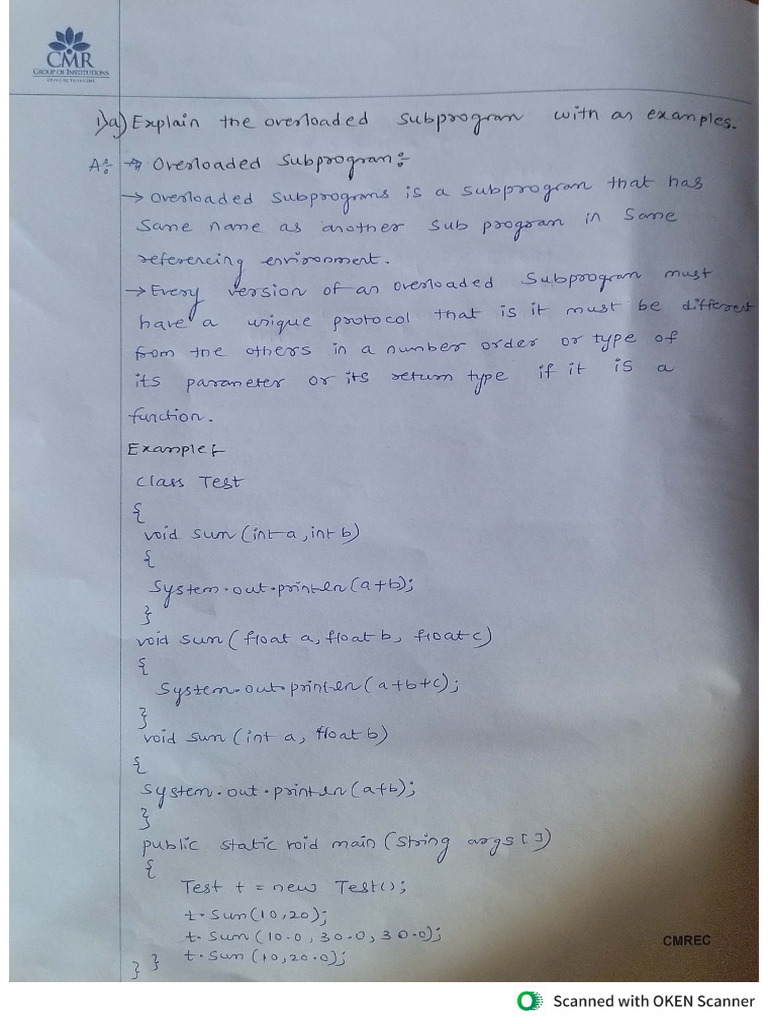 CMR
GROUP OF INSTITUTIONS
EXPLORE TO INVENT
1)a) Explain the overloaded subprogram with an examples.
A:- → Overloaded Subprogram:-
→ Overloaded subprograms is a subprogram that has
same name as another sub program in same
referencing environment.
→ Every version of an overloaded subprogram must
have a unique protocol that is it must be different
from the others in a number order or type of
its parameter or its return type if it is a
function.
Example:-
class Test
{
void sum (int a, int b)
{
System.out.println(a+b);
}
void sum (float a, float b, float c)
{
System.out.println(a+b+c);
}
void sum (int a, float b)
{
System.out.println(a+b);
}
public static void main (String args[])
{
Test t = new Test();
t.sum(10,20);
t.sum(10.0,30.0,30.0);
t.sum(10,20.0);
} }
CMREC
Scanned with OKEN Scanner